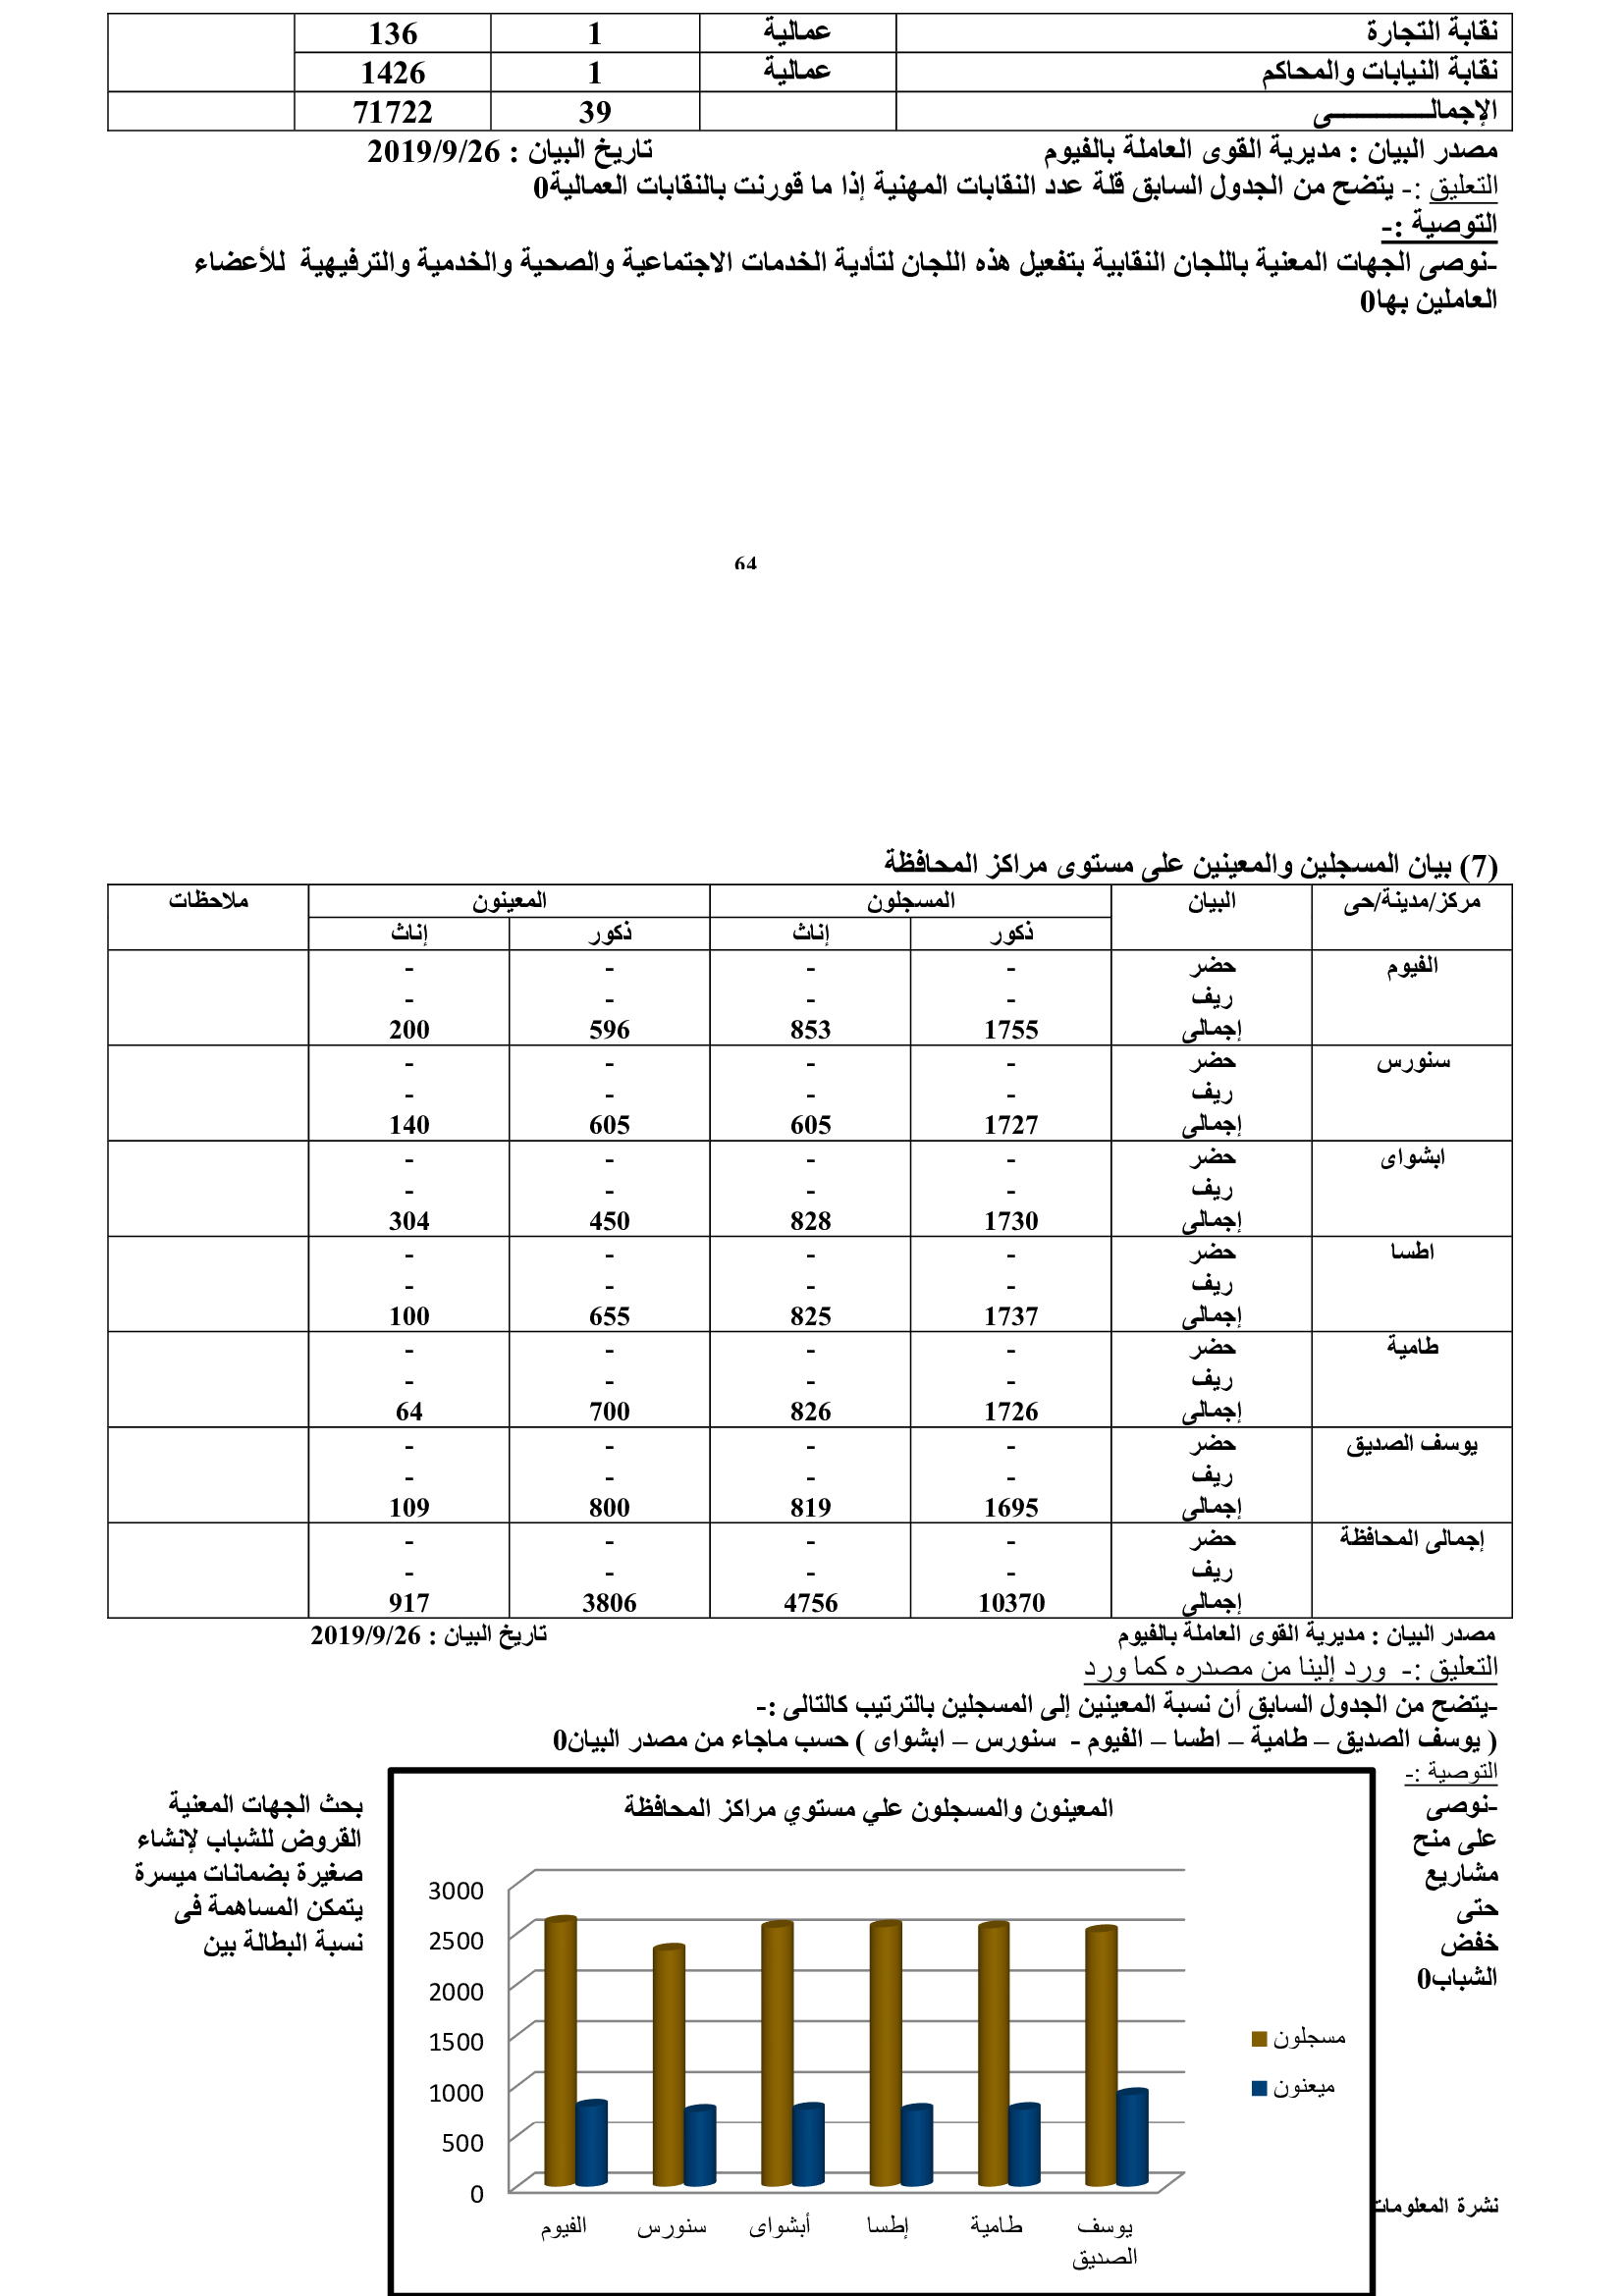 نقابة التجارة عمالية 1 136
نقابة النيابات والمحاكم عمالية 1 1426
الإجمالـــــــــــــــى 39 71722
مصدر البيان : مديرية القوى العاملة بالفيوم تاريخ البيان : 2019/9/26
التعليق :- يتضح من الجدول السابق قلة عدد النقابات المهنية إذا ما قورنت بالنقابات العمالية0
التوصية :-
-نوصى الجهات المعنية باللجان النقابية بتفعيل هذه اللجان لتأدية الخدمات الاجتماعية والصحية والخدمية والترفيهية للأعضاء
العاملين بها0
64
(7) بيان المسجلين والمعينين على مستوى مراكز المحافظة
مركز/مدينة/حى البيان المسجلون المعينون ملاحظات
ذكور إناث ذكور إناث
الفيوم حضر - - - -
ريف - - - -
إجمالى 1755 853 596 200
سنورس حضر - - - -
ريف - - - -
إجمالى 1727 605 605 140
ابشواى حضر - - - -
ريف - - - -
إجمالى 1730 828 450 304
اطسا حضر - - - -
ريف - - - -
إجمالى 1737 825 655 100
طامية حضر - - - -
ريف - - - -
إجمالى 1726 826 700 64
يوسف الصديق حضر - - - -
ريف - - - -
إجمالى 1695 819 800 109
إجمالى المحافظة حضر - - - -
ريف - - - -
إجمالى 10370 4756 3806 917
مصدر البيان : مديرية القوى العاملة بالفيوم تاريخ البيان : 2019/9/26
التعليق :- ورد إلينا من مصدره كما ورد
-يتضح من الجدول السابق أن نسبة المعينين إلى المسجلين بالترتيب كالتالى :-
( يوسف الصديق – طامية – اطسا – الفيوم - سنورس – ابشواى ) حسب ماجاء من مصدر البيان0
التوصية :-
-نوصى بحث الجهات المعنية
على منح القروض للشباب لإنشاء
مشاريع صغيرة بضمانات ميسرة
حتى يتمكن المساهمة فى
خفض نسبة البطالة بين
الشباب0
المعينون والمسجلون علي مستوي مراكز المحافظة
3000
2500
2000
1500
1000
500
0
الفيوم سنورس أبشواى إطسا طامية يوسف الصديق
مسجلون
ميعنون
نشرة المعلومات